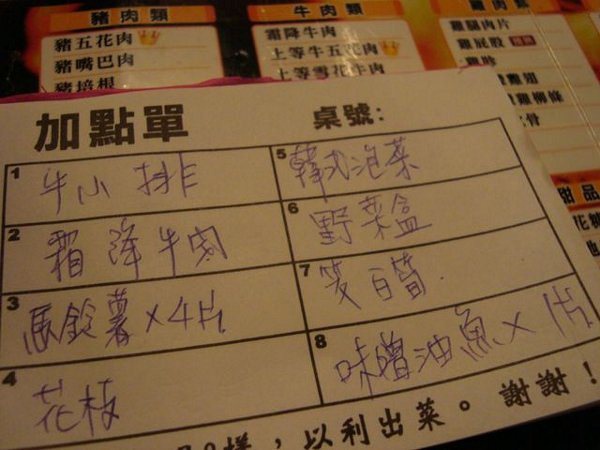 豬肉類
豬五花肉
豬嘴巴肉
豬培根
牛肉類
霜降牛肉
上等牛五花肉
上等雪花牛肉
雞腿肉片
雞屁股
雞胗
加點單
桌號:
1 牛小排
2 霜降牛肉
3 馬鈴薯×4片
4 花枝
5 韓式泡菜
6 野菜盒
7 筊白筍
8 味噌油魚×1片
甜品
樣,以利出菜。謝謝!